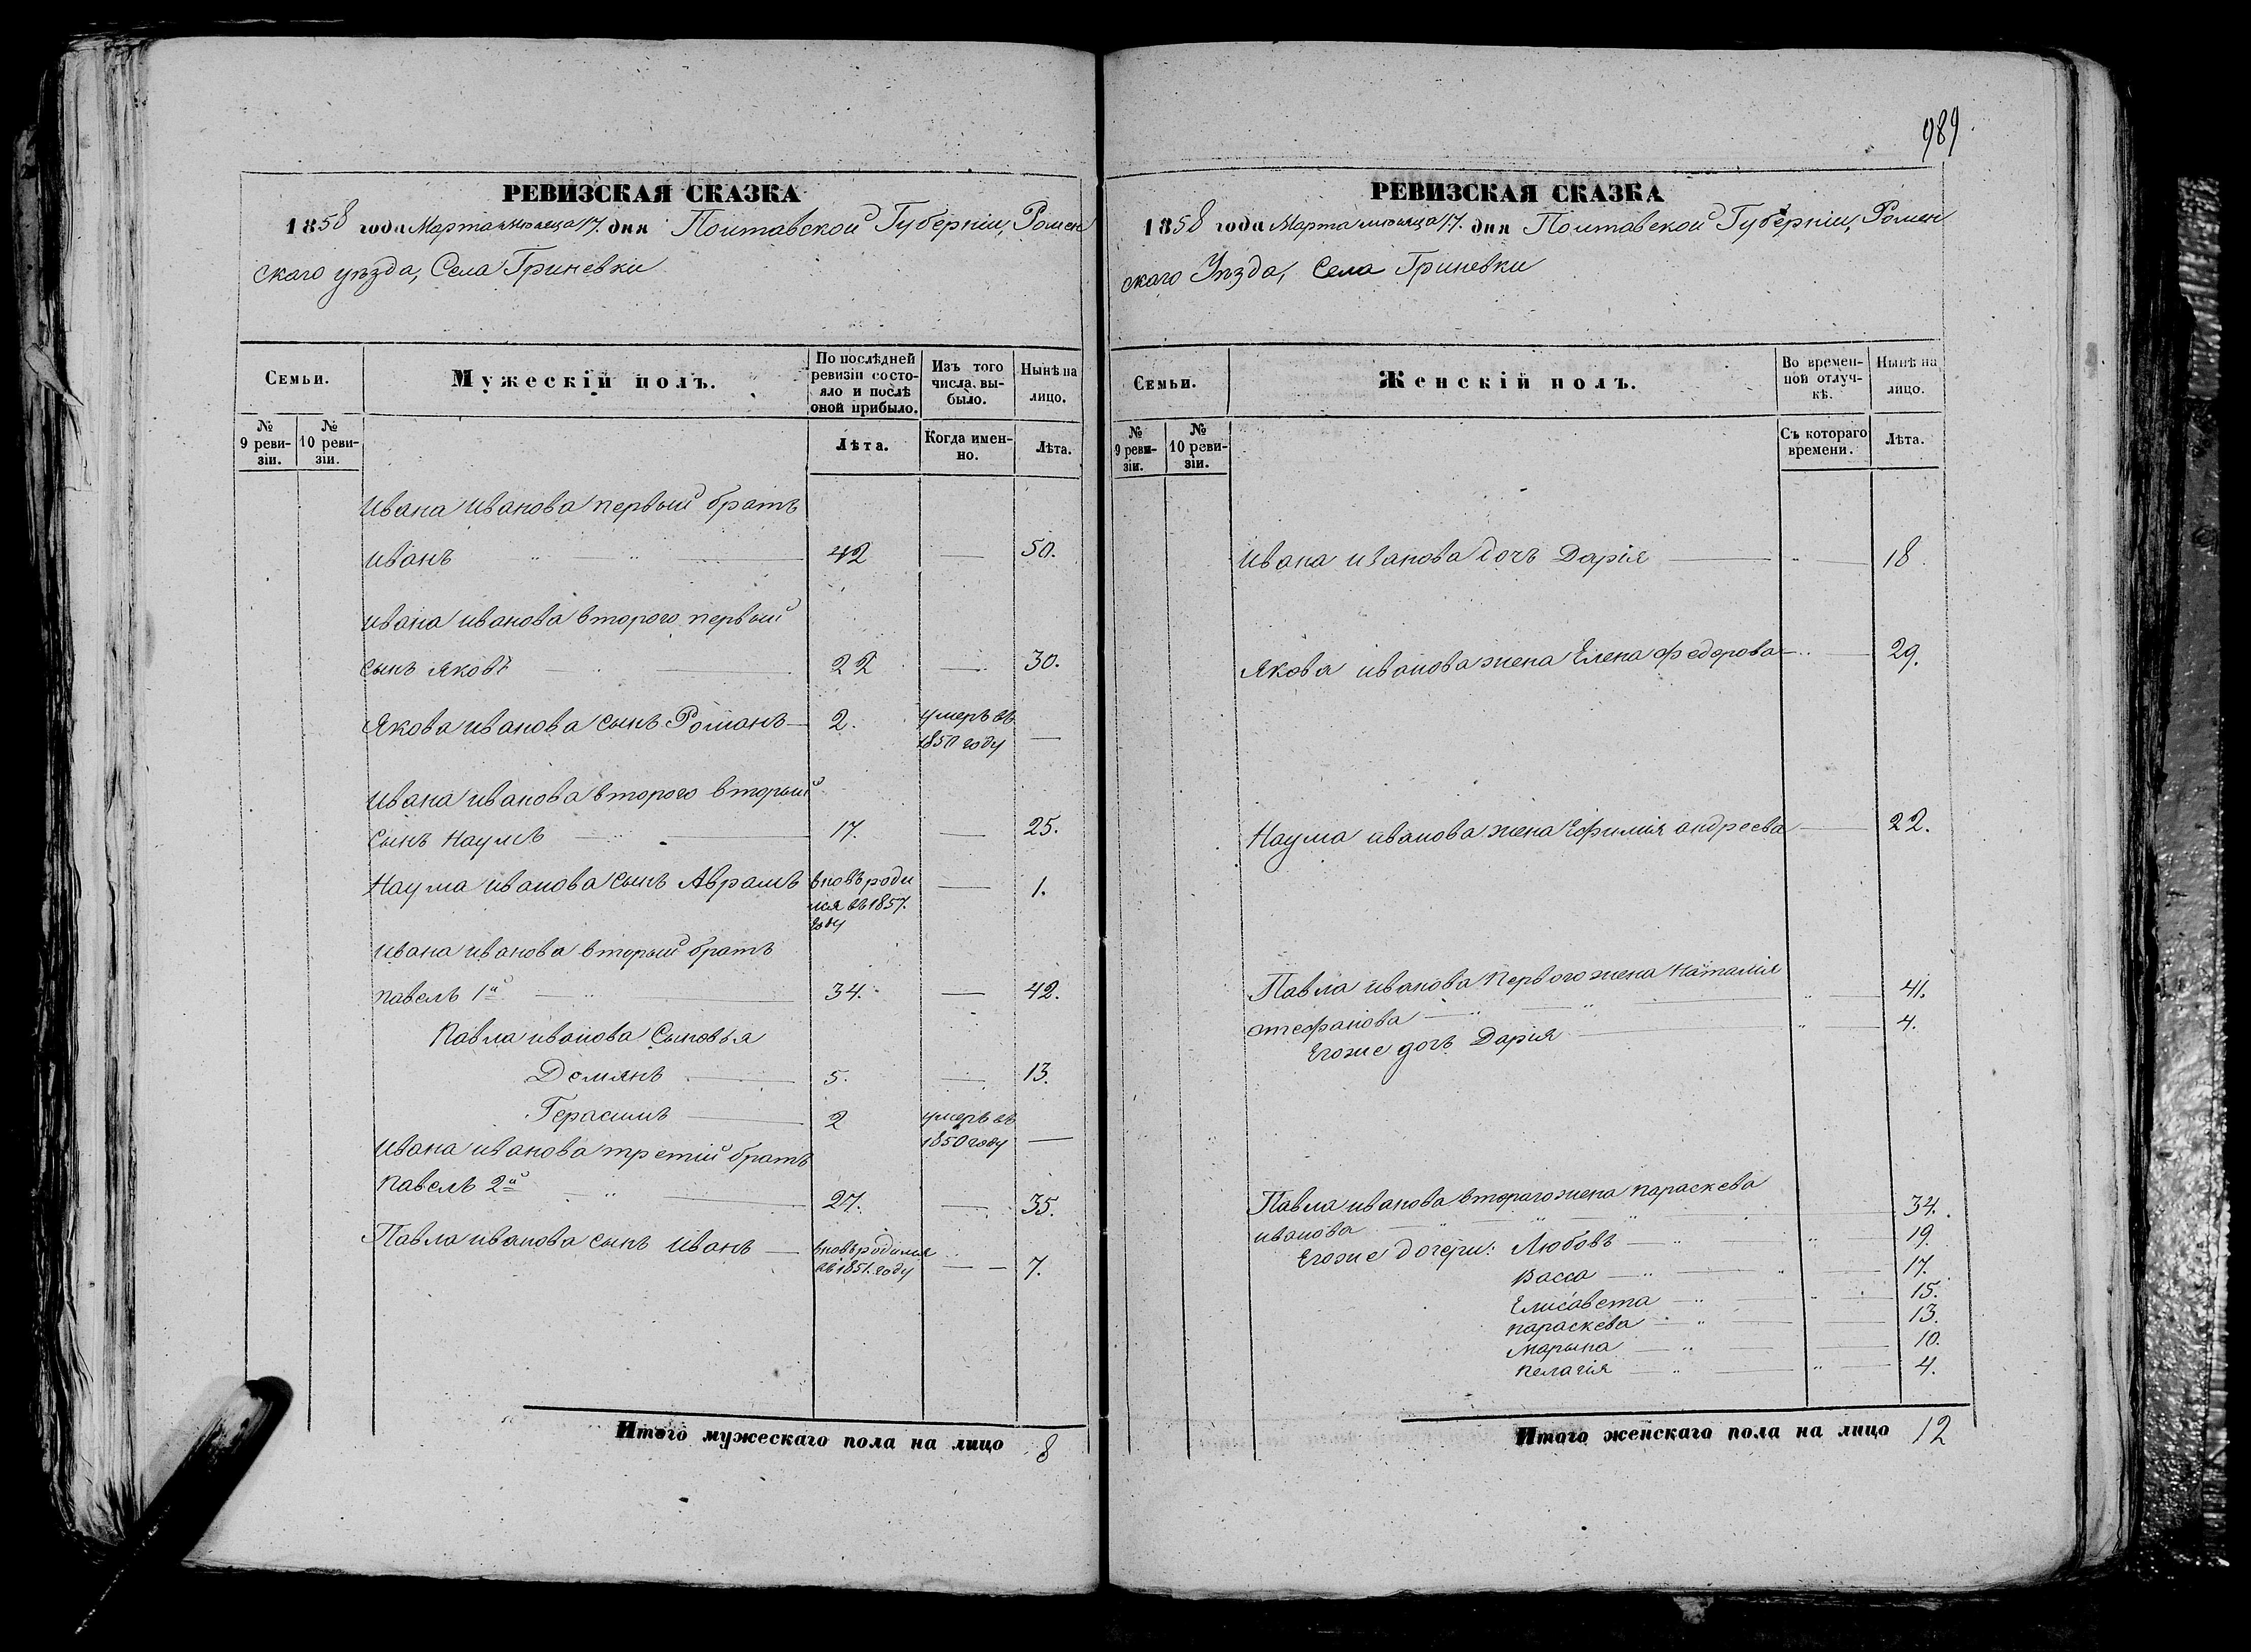 РЕВИЗСКАЯ СКАЗКА
1858 года Марта месяца 17. дня Полтавской Губерніи, Ромен
скаго уѣзда, Села Гриневки
Семьи.
Мужескій полъ.
По послѣдней
ревизіи состо-
яло и послѣ
оной прибыло.
Изъ того
числа вы-
было.
Нынѣ на
лицо.
№
9 реви-
зіи.
№
10 реви-
зіи.
Лѣта.
Когда имен-
но.
Лѣта.
Ивана Иванова первый братъ
Иванъ 42 50.
Ивана Иванова второго первый
сынъ Яковъ 22 30.
Якова Иванова сынъ Романъ 2. умеръ въ
1850 году
Ивана Иванова второго вторый
сынъ Наумъ 17. 25.
Наума Иванова сынъ Аврамъ вновь роди 1.
лся въ 1857.
году
Ивана Иванова вторый братъ
Павелъ 1й 34. 42.
Павла Иванова Сыновья
Домянъ 5. 13.
Герасимъ 2 умеръ въ
1850 году
Ивана Иванова третій братъ
Павелъ 2й 27. 35.
Павла Иванова сынъ Иванъ вновь родился
въ 1851. году 7.
Итого мужескаго пола на лицо 8
989
РЕВИЗСКАЯ СКАЗКА
1858 года Марта месяца 17. дня Полтавской Губерніи, Ромен
скаго Уѣзда, Села Гриневки
Семьи.
Женскій полъ.
Во времен-
ной отлуч-
кѣ.
Нынѣ на
лицо.
№
9 реви-
зіи.
№
10 реви-
зіи.
Съ котораго
времени.
Лѣта.
Ивана Иванова дочь Дарія 18
Якова Иванова жена Елена Федорова 29.
Наума Иванова жена Ефимія Андреева 22.
Павла Иванова Первого жена Наталія
Стефанова 41.
Егоже дочь Дарія 4.
Павла Иванова второго жена Параскева
Иванова 34.
Егоже дочери: Любовь 19.
Васса 17.
Елисавета 15.
Параскева 13.
Марына 10.
Пелагія 4.
Итого женскаго пола на лицо 12